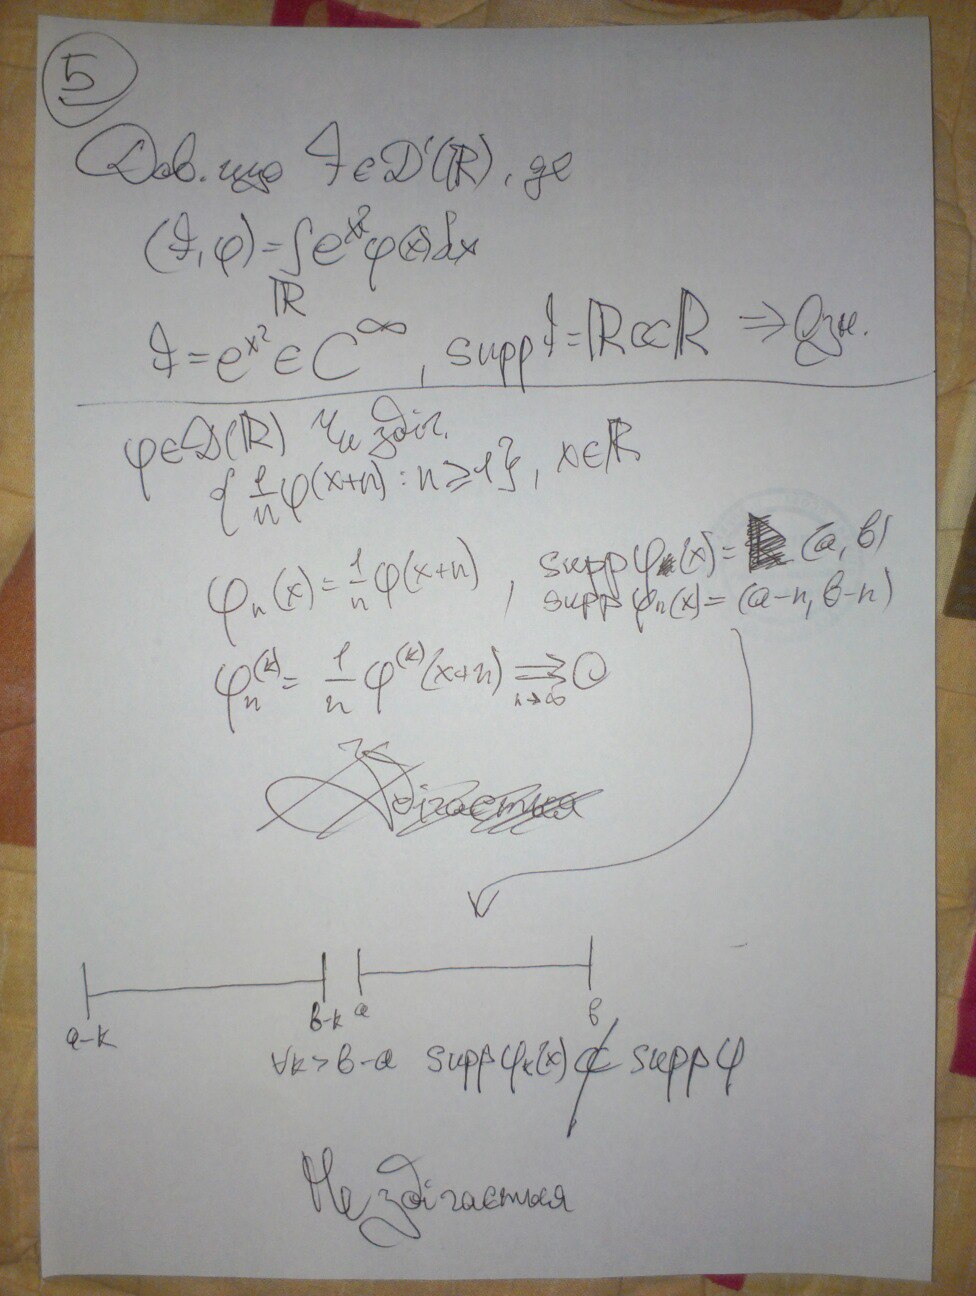 5
Дов. що F ∈ D'(ℝ), де
(F, φ) = ∫ e^{x²} φ(x) dx
ℝ
F = e^{x²} ∈ C^∞, supp F = ℝ ⊂ ℝ ⇒
φ ∈ D(ℝ) Чи збіг.
{ 1/n φ(x+n) : n ≥ 1 }, x ∈ ℝ
φₙ(x) = 1/n φ(x+n), supp φ(x) = (a, b)
supp φₙ(x) = (a-n, b-n)
φₙ^{(k)} = 1/n φ^{(k)}(x+n) ⇉ 0
n→∞
a-k b-k a b
∀k > b-a supp φₖ(x) ⊄ supp φ
Не збігається